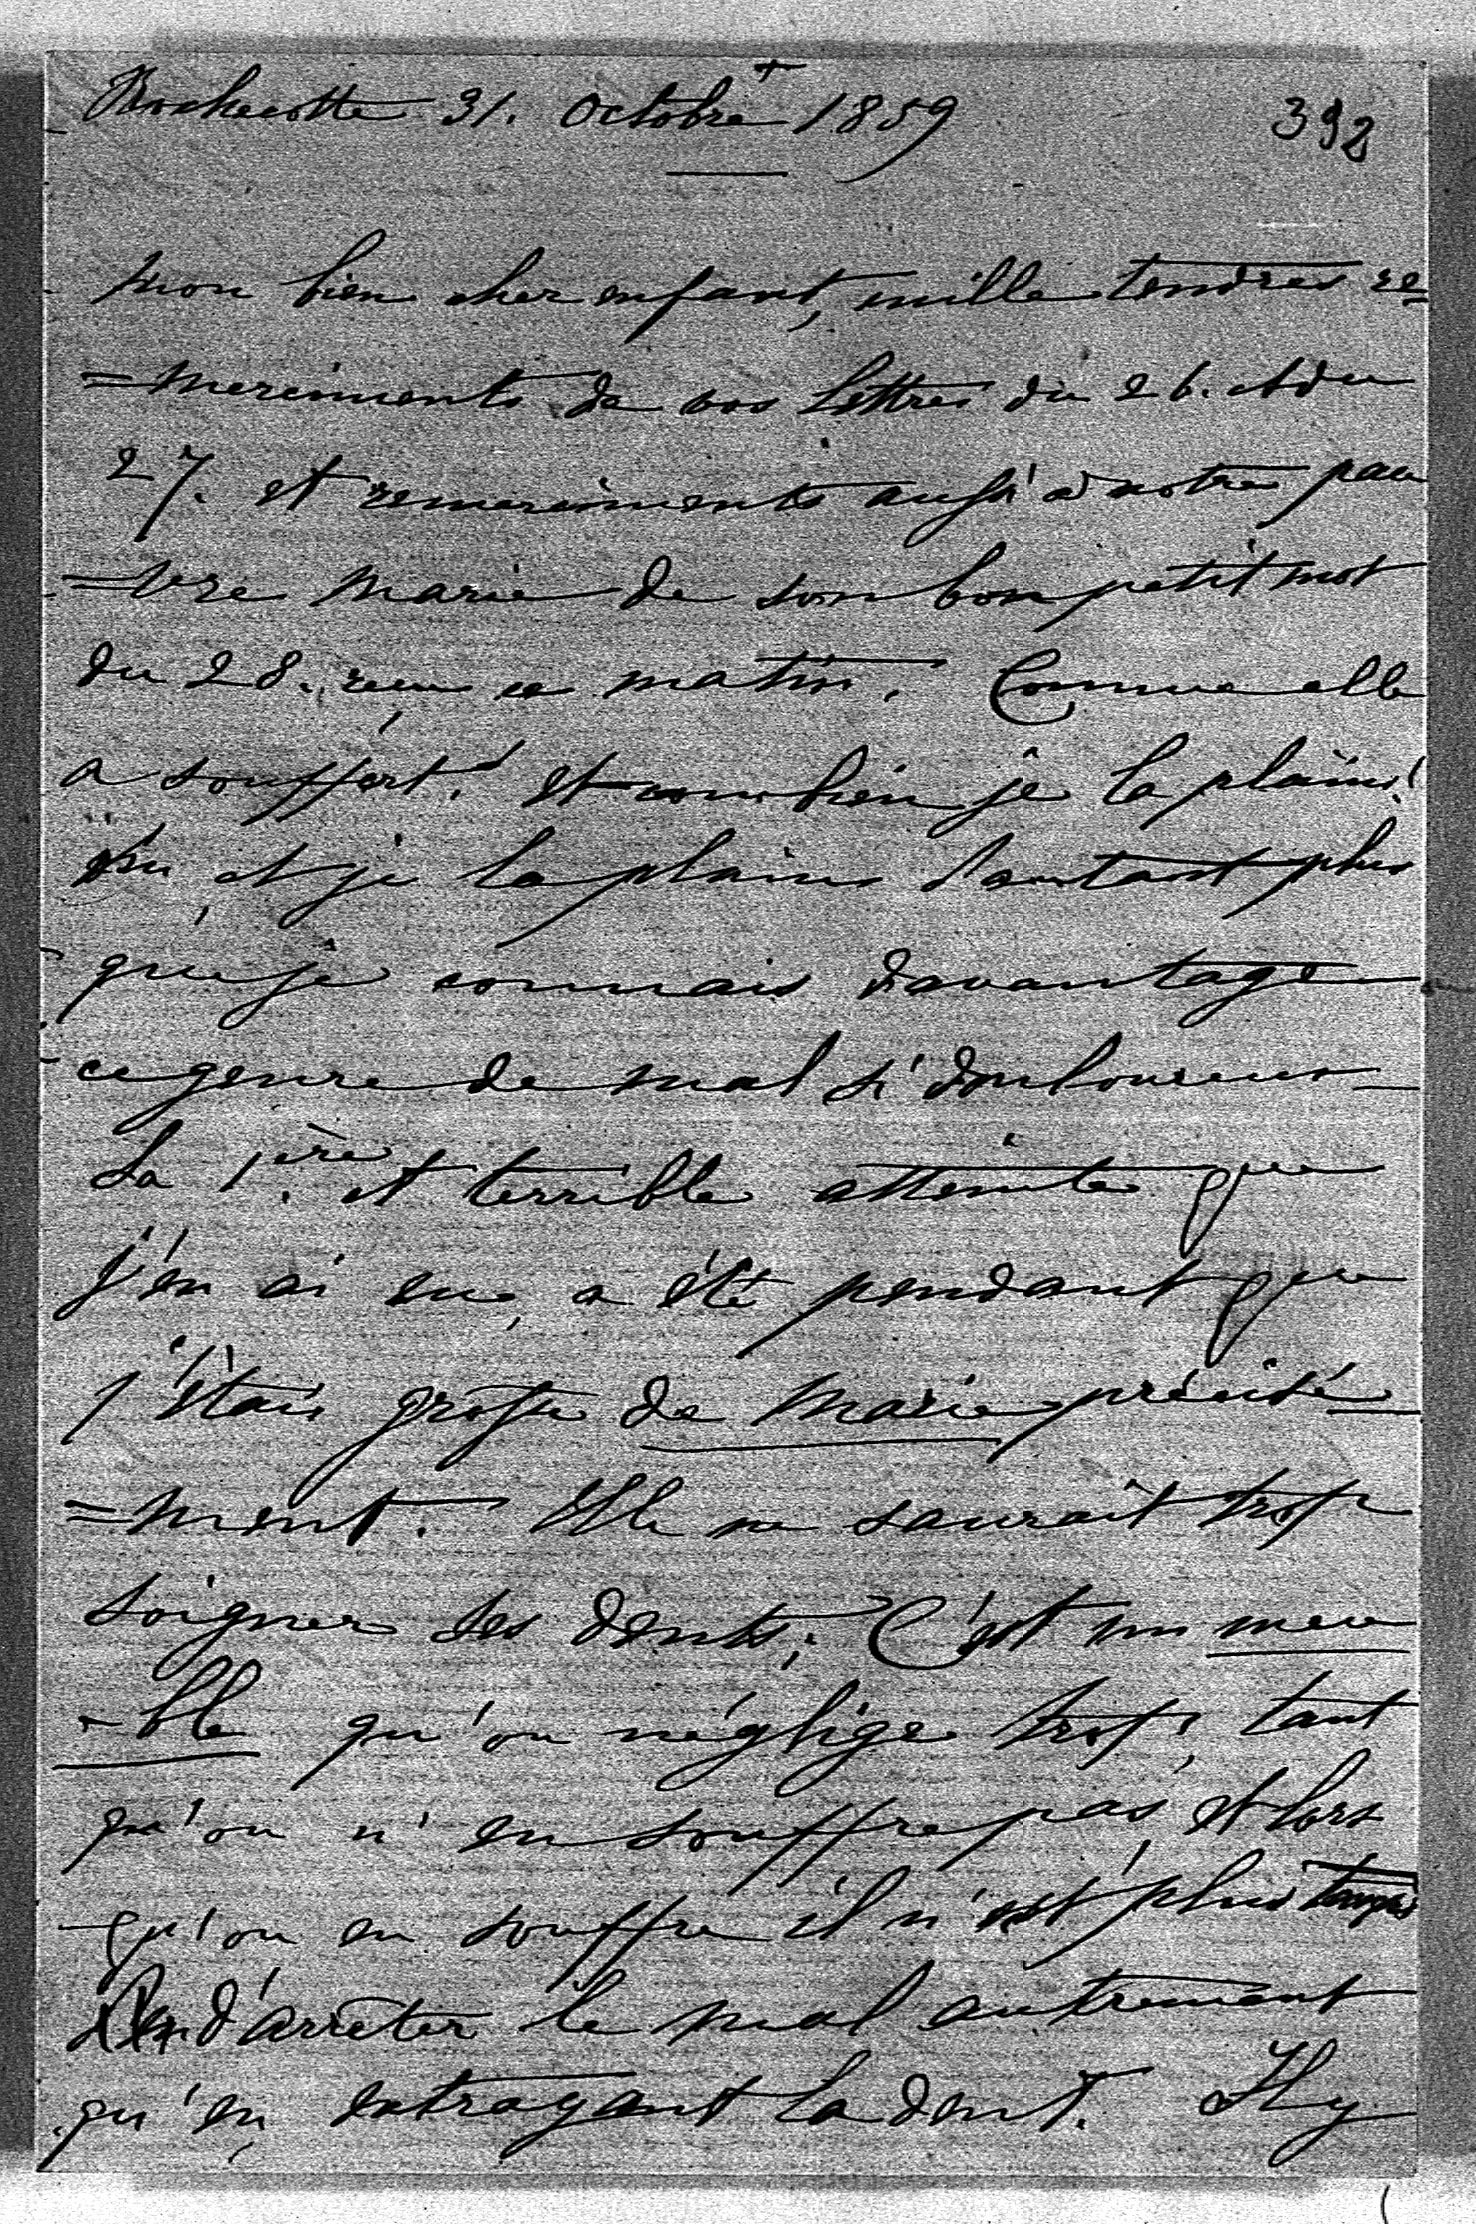 Rochecotte 31. Octobre 1859
392
Mon bien cher enfant, mille tendres re
=merciments de vos lettres du 26. et du
27. et remerciments aussi à notre pau
=vre Marie de son bon petit mot
du 28. reçu ce matin. Comme elle
a souffert! et combien je la plains!
et je la plains d'autant plus
que je connais davantage
ce genre de mal si douloureux
La 1.ère et terrible atteinte que
j'en ai eue, a été pendant que
j'étais grosse de Marie précisé
=ment. Elle ne saurait trop
soigner ses dents; C'est un meu
=ble qu'on néglige trop, tant
qu'on n'en souffre pas, et lors
qu'on en souffre il n'est plus temps
d'arrêter le mal autrement
qu'en extrayant la dent. Il y